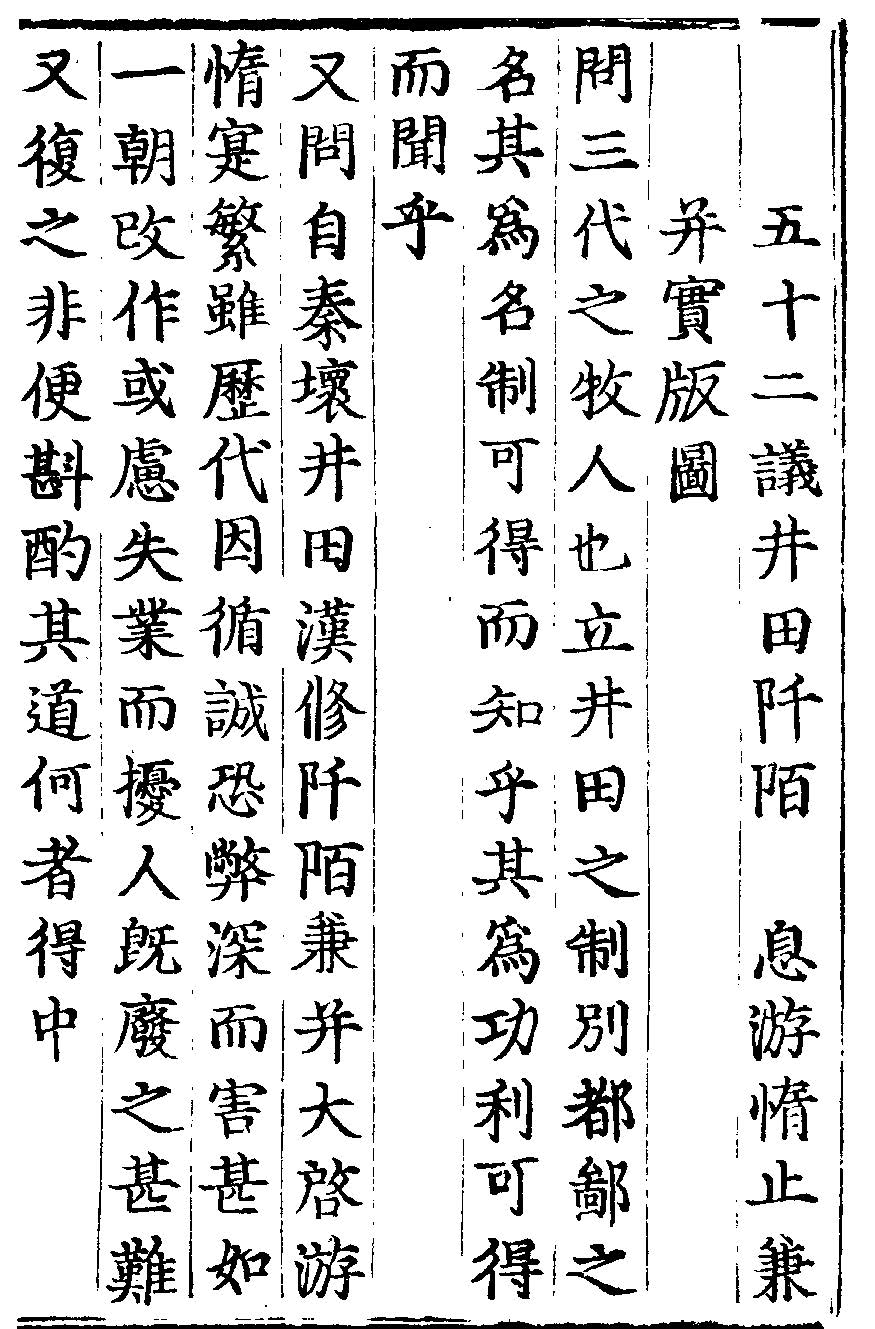 五十二議井田阡陌　息游惰止兼
并實版圖
問三代之牧人也立井田之制別都鄙之
名其爲名制可得而知乎其爲功利可得
而聞乎
又問自秦壞井田漢修阡陌兼并大啓游
惰寔繁雖歷代因循誠恐弊深而害甚如
一朝改作或慮失業而擾人旣廢之甚難
又復之非便斟酌其道何者得中